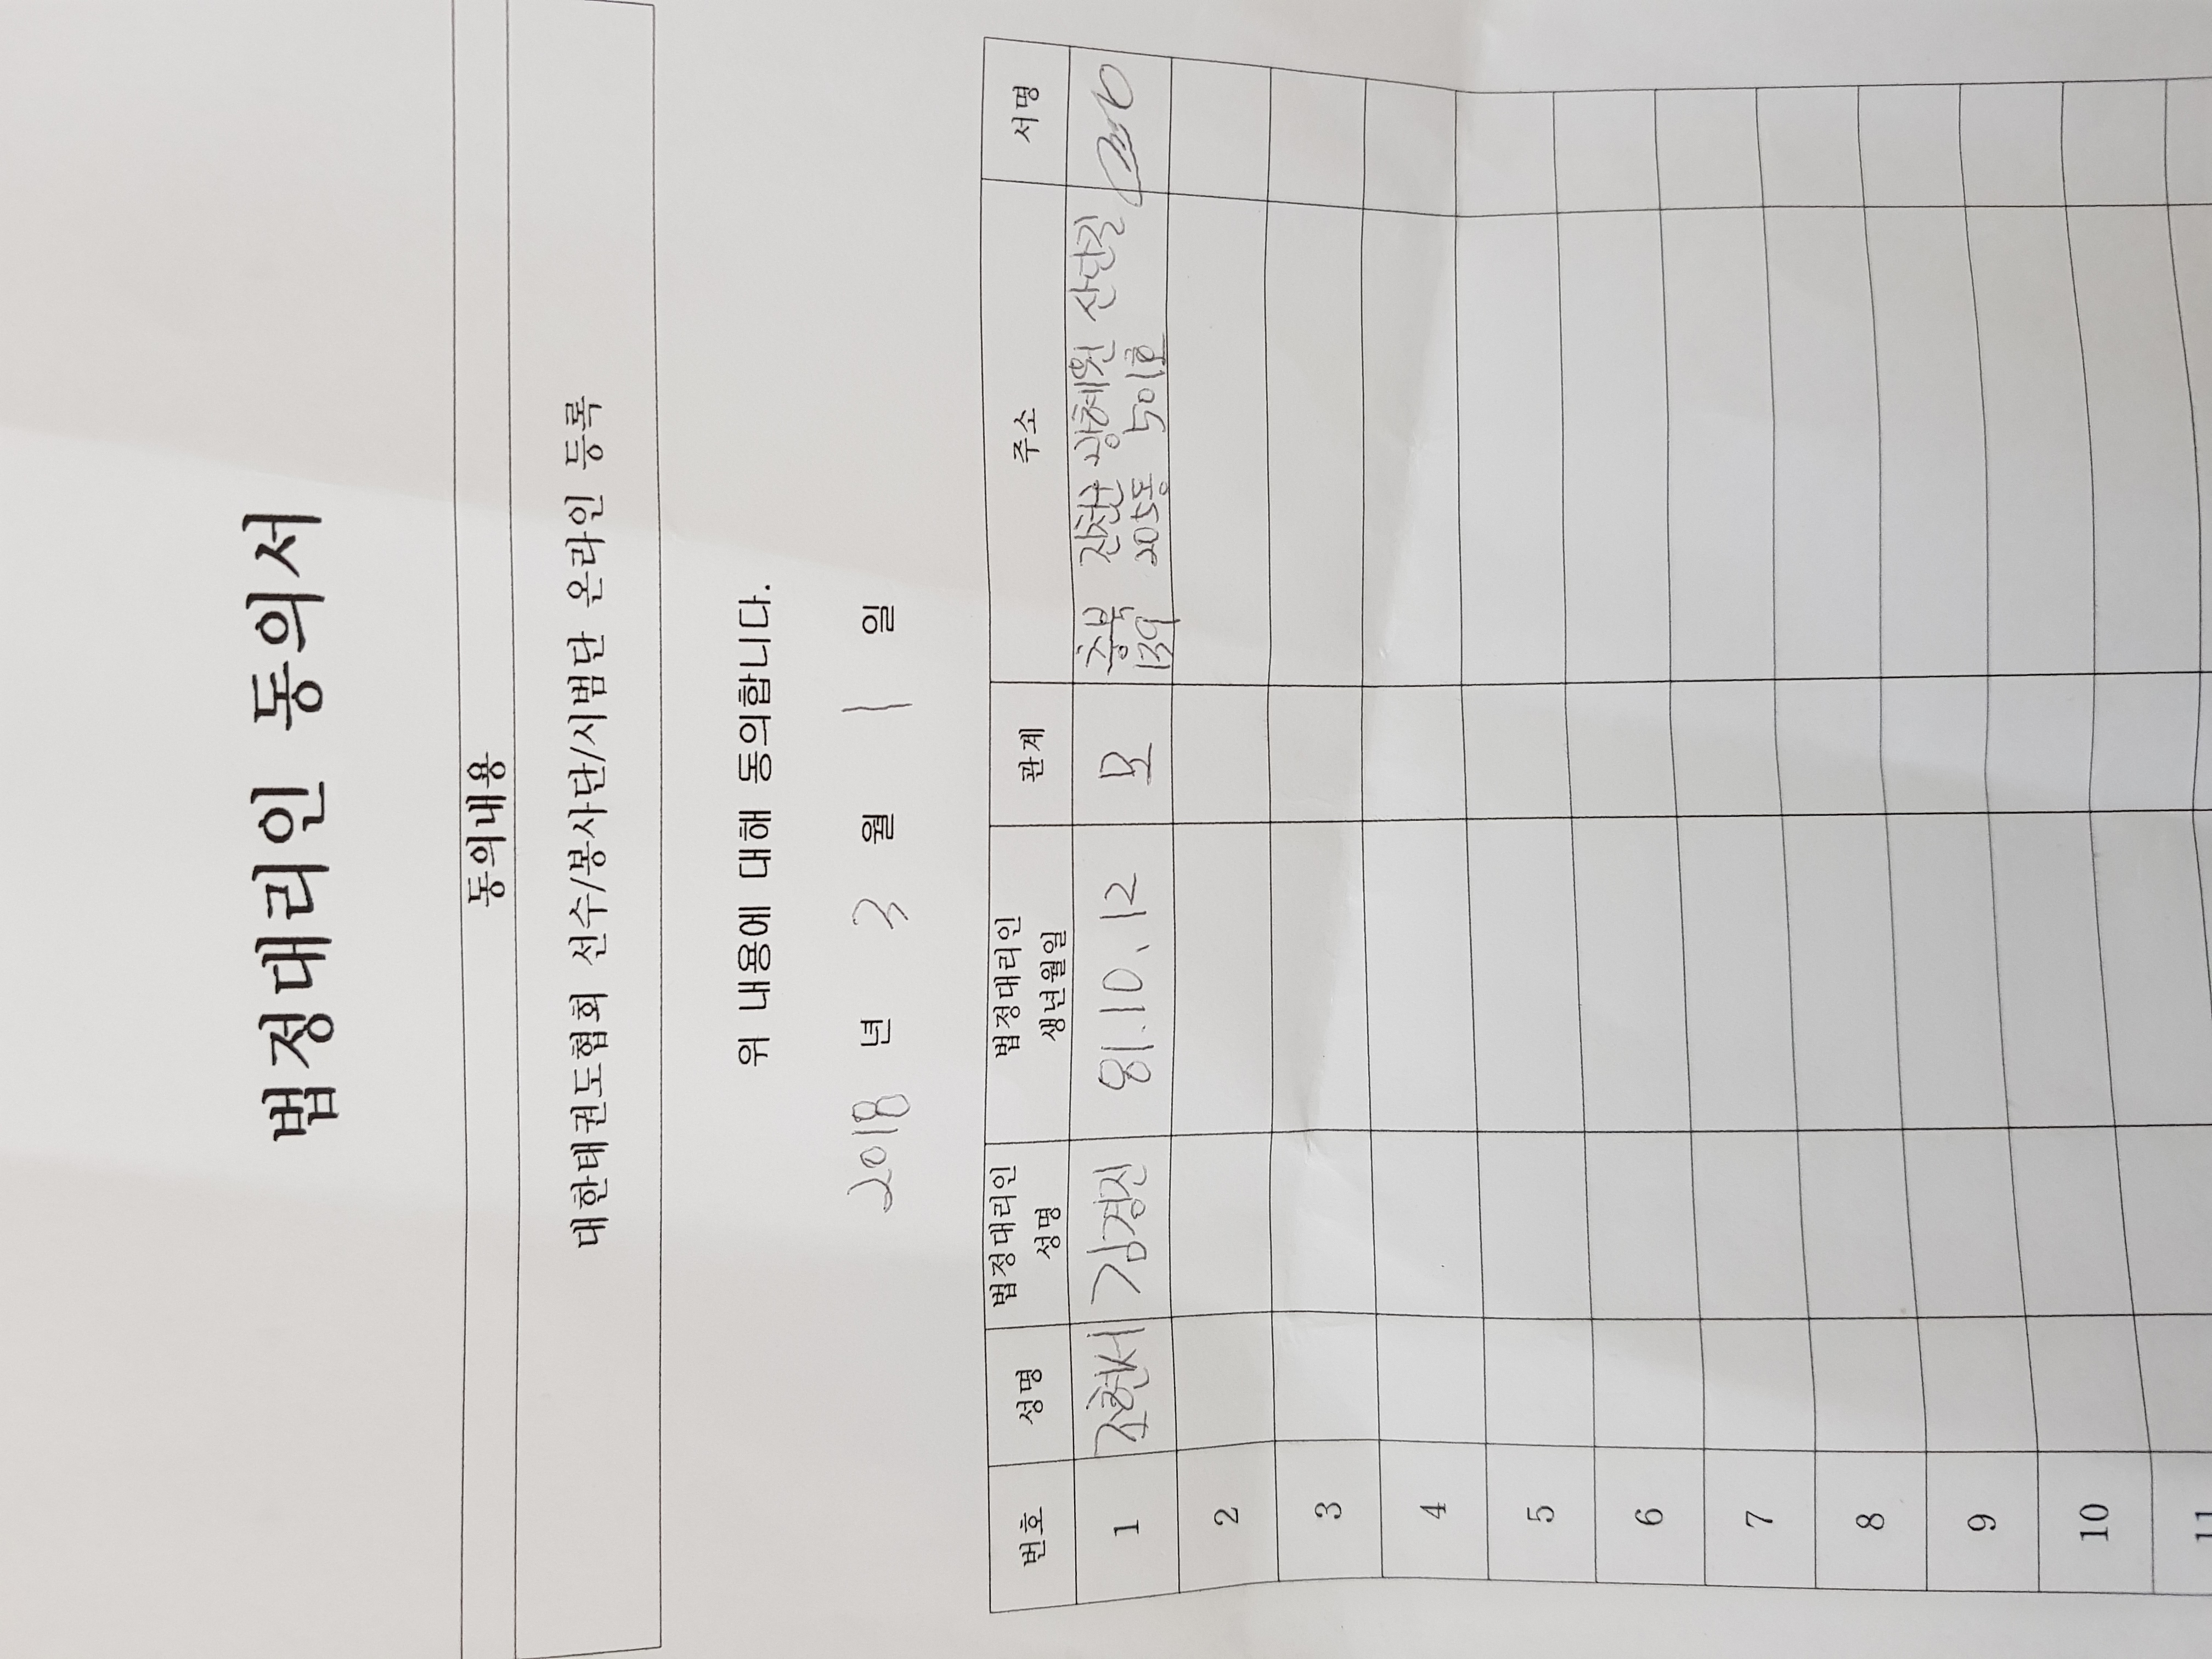 법정대리인 동의서
동의내용
대한태권도협회 선수/봉사단/시범단 온라인 등록
위 내용에 대해 동의합니다.
2018 년 3 월 1 일
번호 성명 법정대리인 성명 법정대리인 생년월일 관계 주소 서명
1 조현서 김경진 81.10.12 모 충북 진천군 광혜원 산단길
139 205동 501호
2
3
4
5
6
7
8
9
10
11